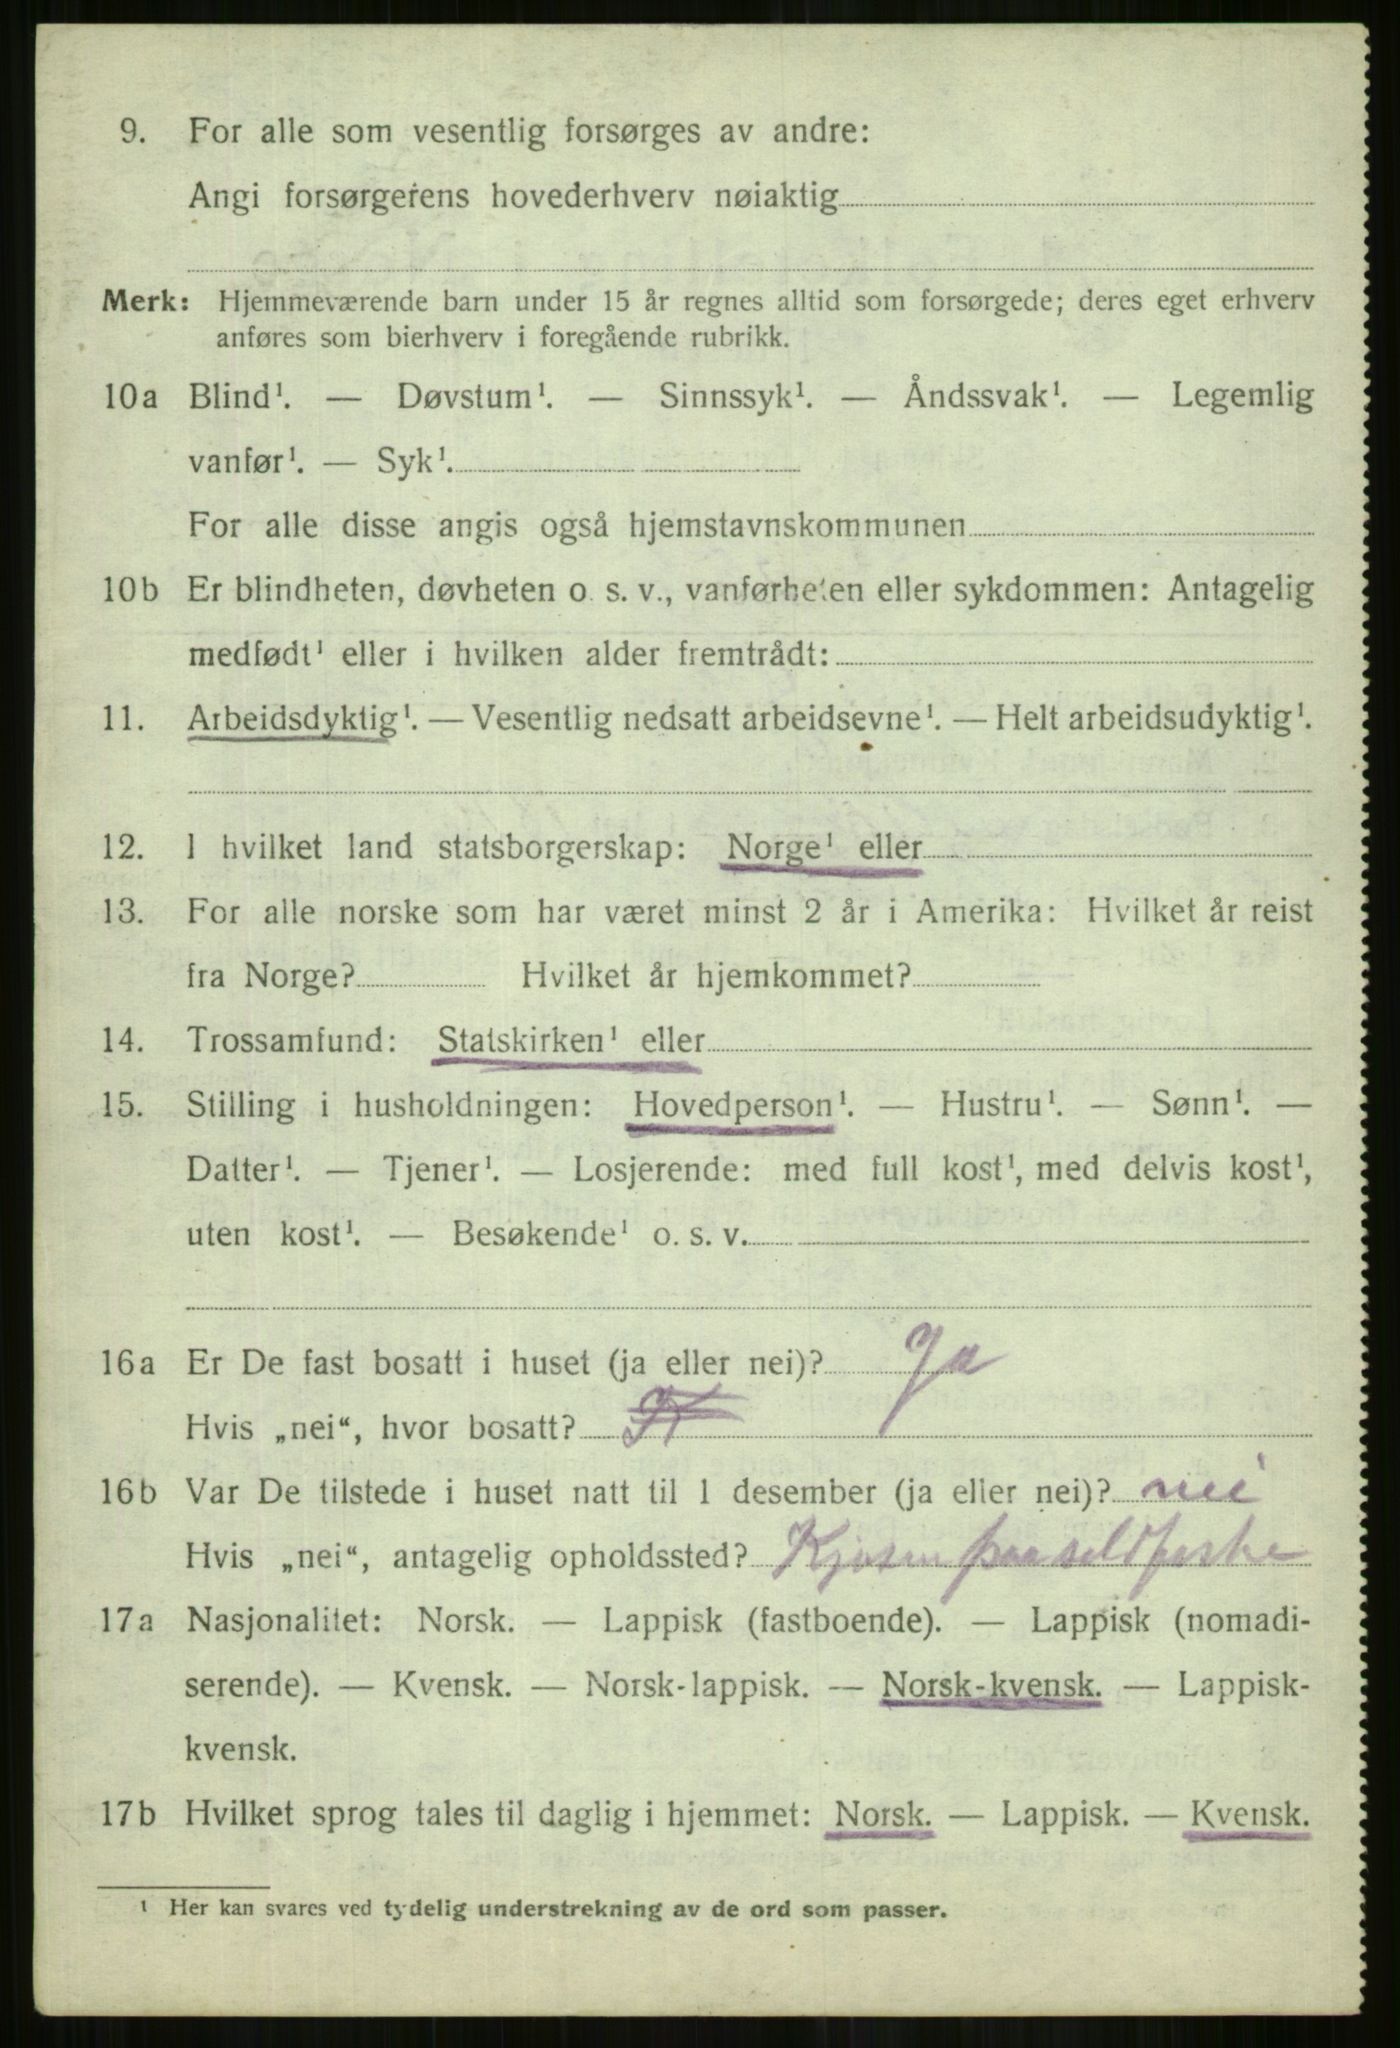 9. For alle som vesentlig forsørges av andre:
Angi forsørgerens hovederhverv nøiaktig
Merk: Hjemmeværende barn under 15 år regnes alltid som forsørgede; deres eget erhverv
anføres som bierhverv i foregående rubrikk.
10a Blind¹. — Døvstum¹. — Sinnssyk¹. — Åndssvak¹. — Legemlig
vanfør¹. — Syk¹.
For alle disse angis også hjemstavnskommunen
10b Er blindheten, døvheten o. s. v., vanførheten eller sykdommen: Antagelig
medfødt¹ eller i hvilken alder fremtrådt:
11. Arbeidsdyktig¹. — Vesentlig nedsatt arbeidsevne¹. — Helt arbeidsudyktig¹.
12. I hvilket land statsborgerskap: Norge¹ eller
13. For alle norske som har været minst 2 år i Amerika: Hvilket år reist
fra Norge? Hvilket år hjemkommet?
14. Trossamfund: Statskirken¹ eller
15. Stilling i husholdningen: Hovedperson¹. — Hustru¹. — Sønn¹. —
Datter¹. — Tjener¹. — Losjerende: med full kost¹, med delvis kost¹,
uten kost¹. — Besøkende¹ o. s. v.
16a Er De fast bosatt i huset (ja eller nei)? Ja
Hvis „nei“, hvor bosatt?
16b Var De tilstede i huset natt til 1 desember (ja eller nei)? nei
Hvis „nei“, antagelig opholdssted? Kjosen paa sildfiske
17a Nasjonalitet: Norsk. — Lappisk (fastboende). — Lappisk (nomadi-
serende). — Kvensk. — Norsk-lappisk. — Norsk-kvensk. — Lappisk-
kvensk.
17b Hvilket sprog tales til daglig i hjemmet: Norsk. — Lappisk. — Kvensk.
¹ Her kan svares ved tydelig understrekning av de ord som passer.